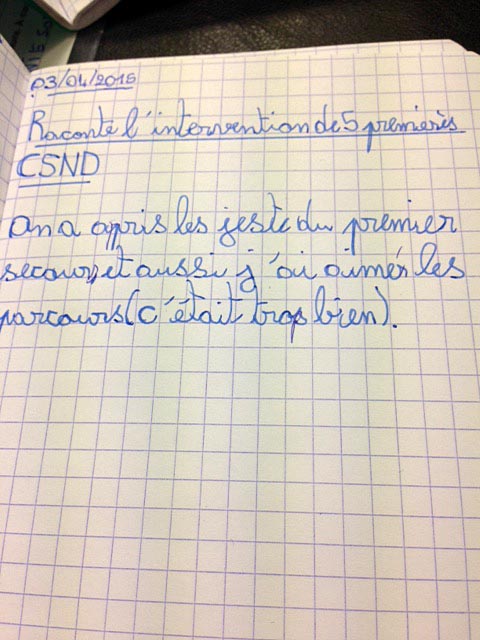 03/04/2015
Raconte l'intervention de 5 premieres
CSND
On a appris les geste du premier
secour, et aussi j'ai aimér les
parcours (c'était trop bien).